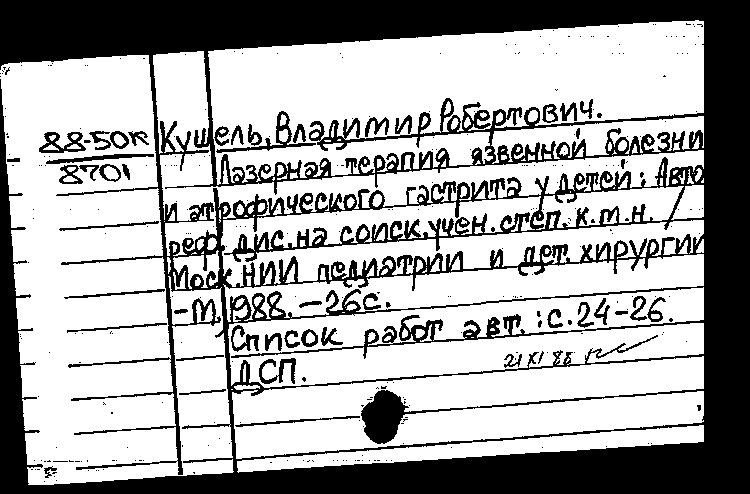 88-50к
8701
Кушель, Владимир Робертович.
Лазерная терапия язвенной болезни
и атрофического гастрита у детей: Авто
реф. дис. на соиск. учен. степ. к.т.н. /
Моск. НИИ педиатрии и дет. хирургии
-М., 1988. -26с.
Список работ авт.: с.24-26.
ДСП.
21 XI 88